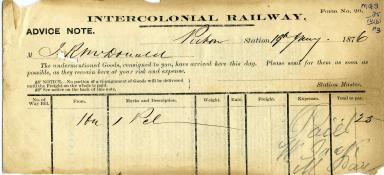 INTERCOLONIAL RAILWAY.
Form No. 90.
ADVICE NOTE.
Pictou Station, 19th Jany. 1876
M J. R. McDonald
The undermentioned Goods, consigned to you, have arrived here this day. Please send for them as soon as
possible, as they remain here at your risk and expense.
BY NOTICE.—No portion of a consignment of Goods will be delivered
until the Freight on the whole is paid.
See notice on the back of this note.
Station Master.
No. of Way Bill. From. Marks and Description. Weight. Rate. Freight. Expenses. Total to pay.
1 Pcl 25
Paid